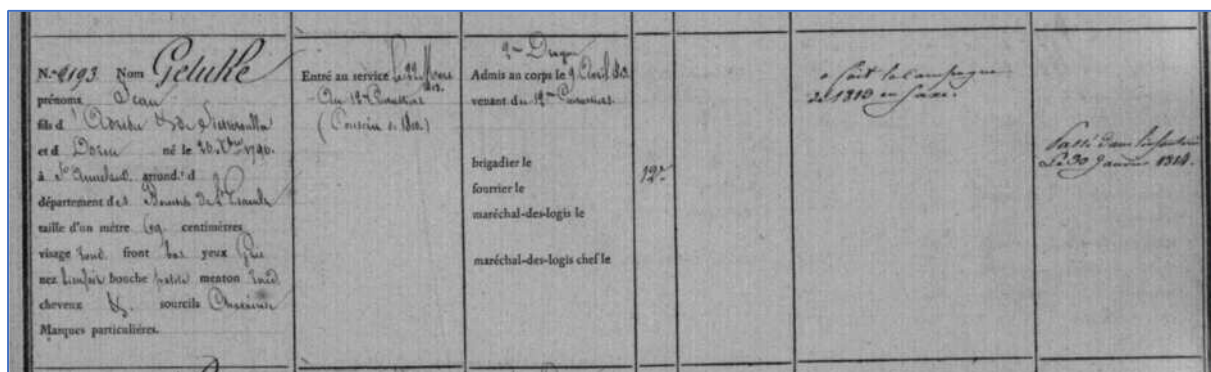 N.º 2193 Nom Getukke
prénoms Jean
fils d' Adrien & de
et d né le 20. Xbre 1790.
à St Anneland. arrond.t d
département des Bouches de l'Escaut
taille d'un mètre 69 centimètres
visage rond. front bas yeux Gris
nez bienfait bouche petite menton rond
cheveux & sourcils Chatains
Marques particulières.
Entré au service le 22 Mars
1813.
Au 12me Cuirassiers
(Conscrit de 1810.)
2me Dragon
Admis au corps le 9 Avril 1813
venant du 12me Cuirassiers
brigadier le
fourrier le
maréchal-des-logis le
maréchal-des-logis chef le
12e
a fait la campagne
de 1813 en Saxe.
Passé dans
le 30 Janvier 1814.